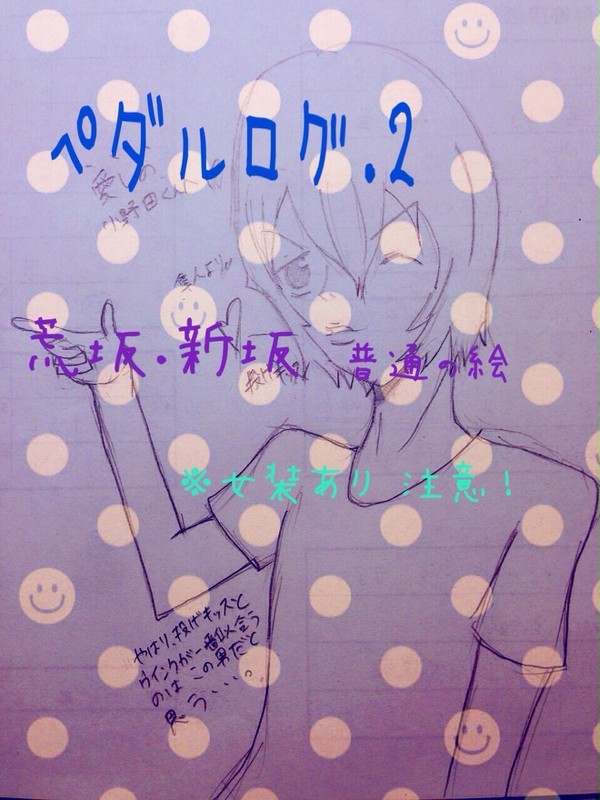 ペダルログ.2
愛しの
小野田くんへ
隼人より
荒坂・新坂 普通の絵
投げキッス
※女装あり 注意!
やはり、投げキッスと
ウインクが一番似合う
のはこの男だと
思う・・・。